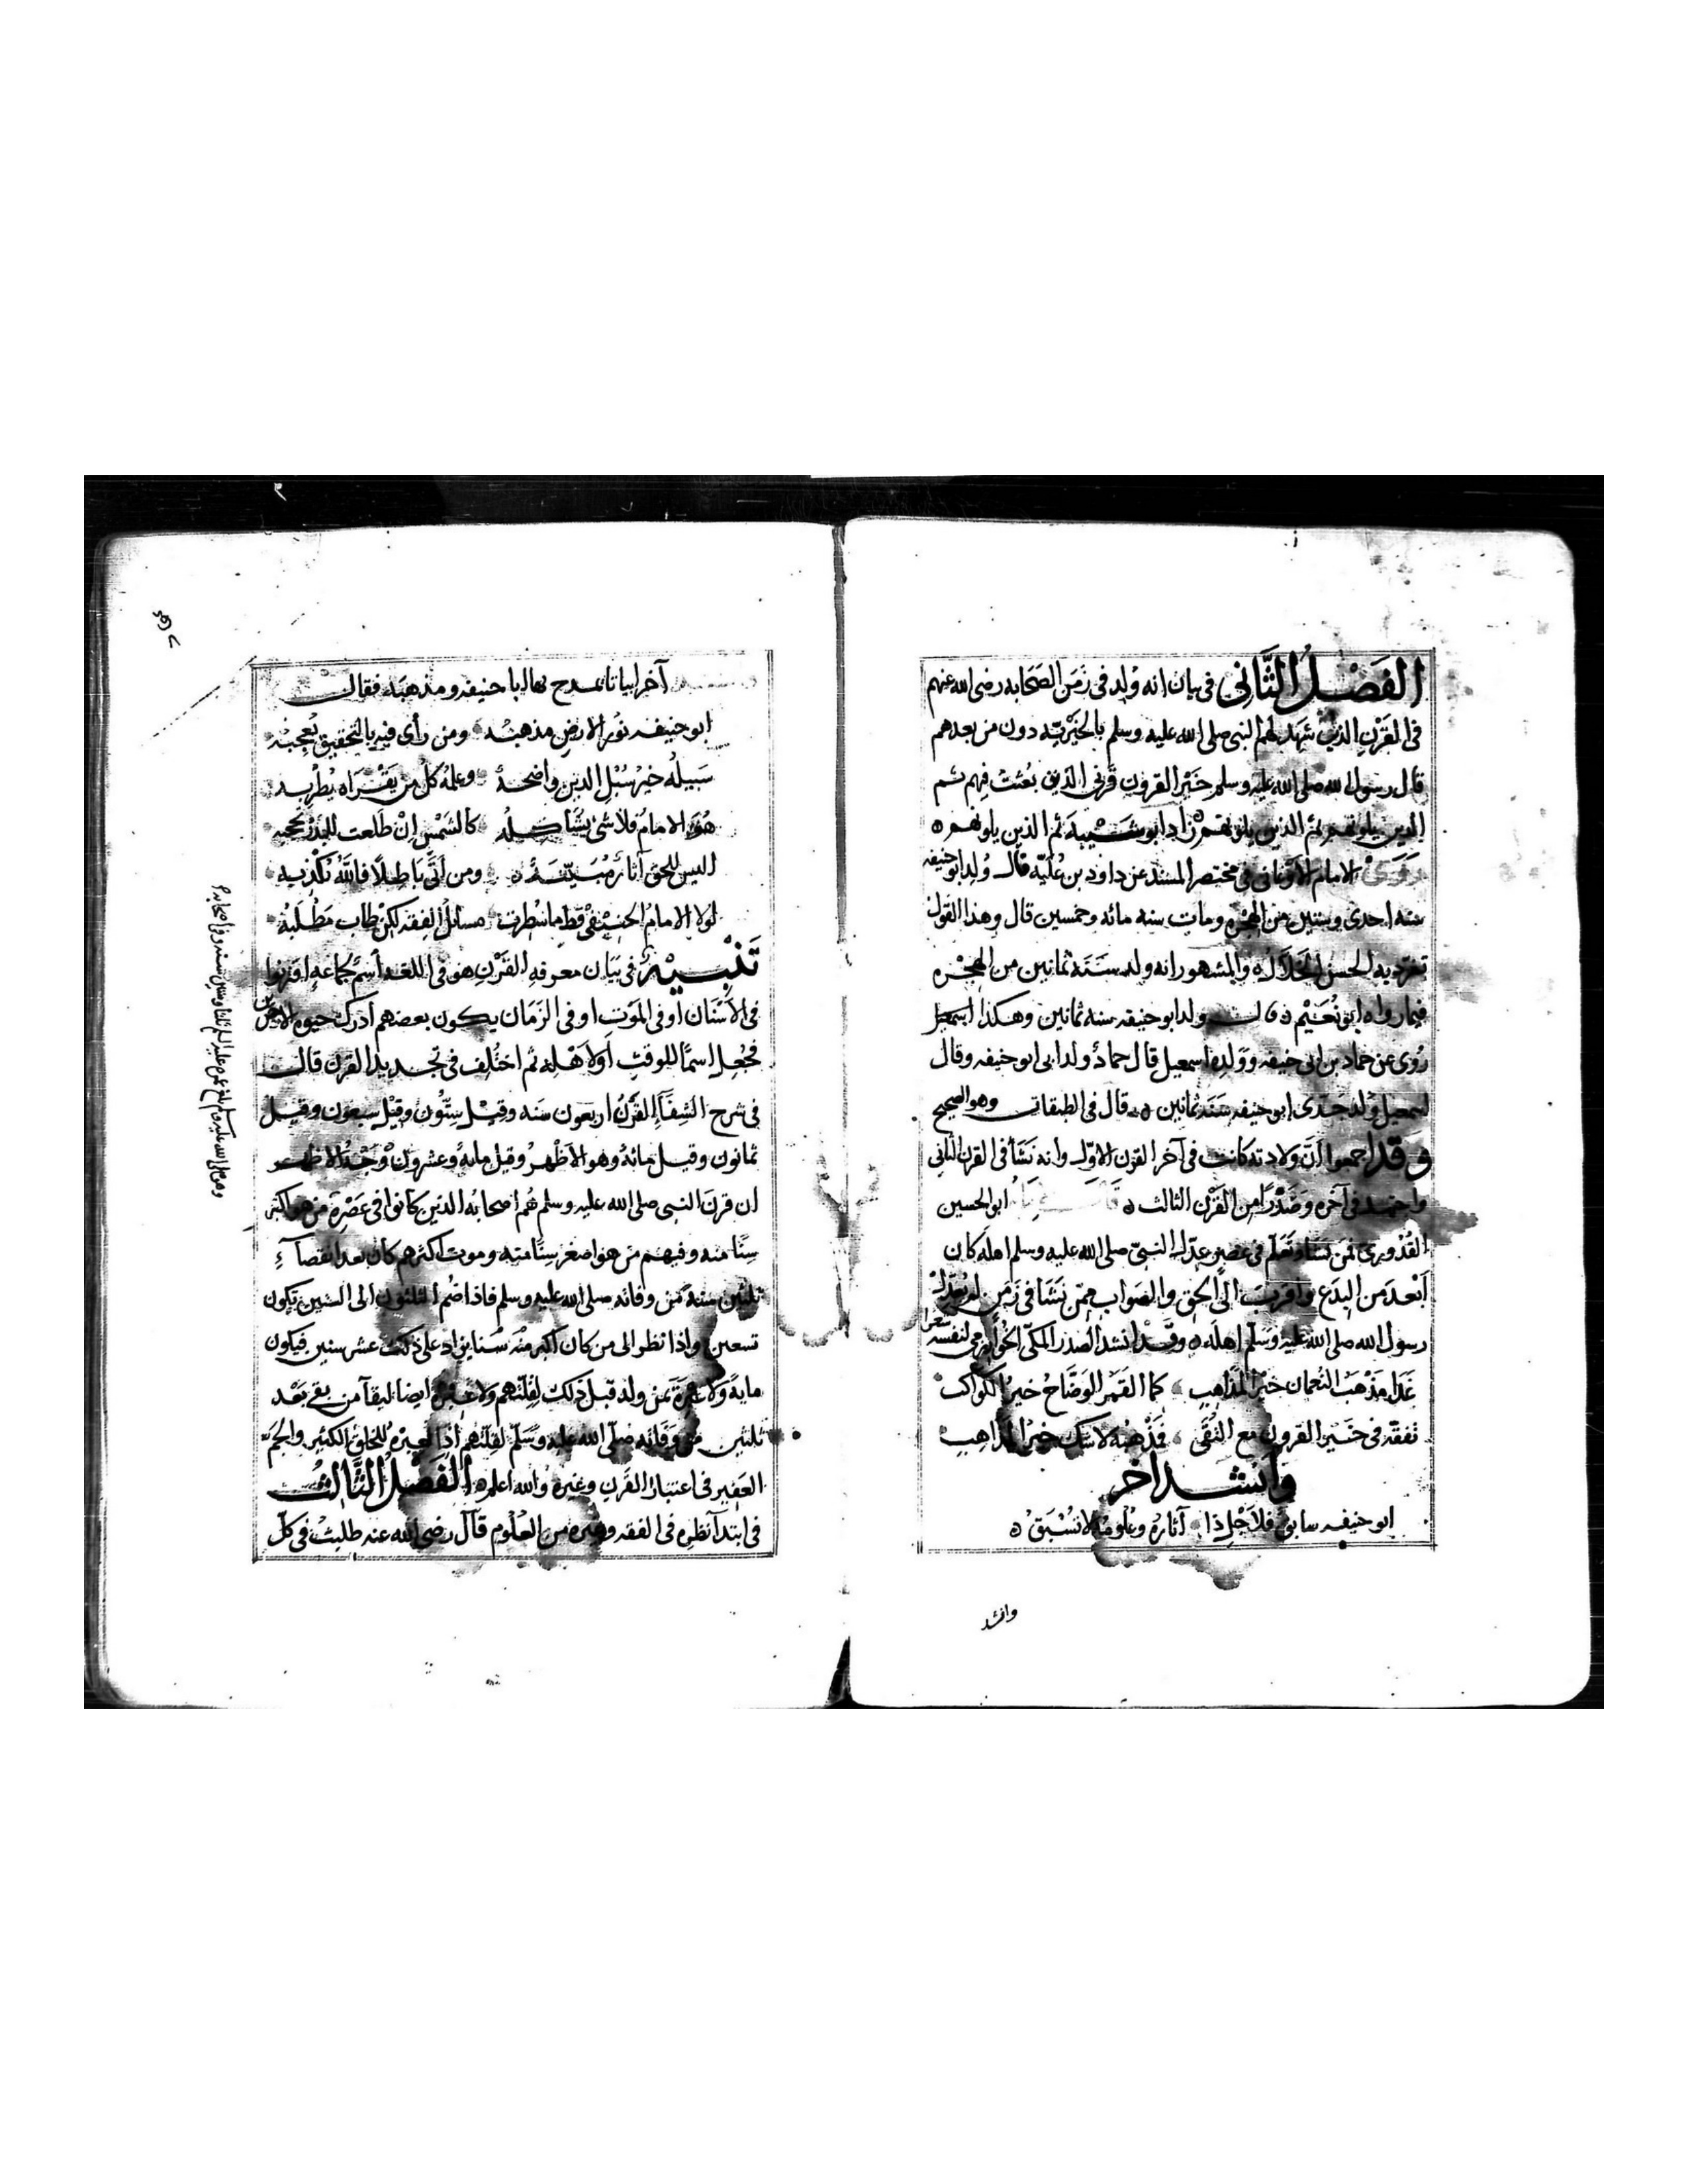 الفَصْلُ الثَّانِى فى بيان انه وُلِد فى زَمَن الصَحَابه رضى الله عنهم
فى القَرْنِ الذى شهَد لهم النبى صلى الله عليه وسلم بالخَيْرِيّه دون من بعدهم
قال رسول الله صلى الله عليه وسلم خَيْر القرون قَرْنى الذين بُعثت فيهم ثم
الذين يلونهم ثم الذين يلونهم زاد ابو شَيْبة ثم الذين يلونهم ٥
رَوَى الامام فى مختصر المسند عن داود بن عُليّة قال وُلِد ابو حنيفه
سنه احدى وستين من الهجره ومات سنه مائه وخمسين قال وهذا القول
تفرّد به الحسن الخلال ٥ والمشهور انه ولد سَنَة ثمانين من الهِجْرَه
فيما رواه ابو نُعَيْم ٥ قال ولد ابو حنيفه سنه ثمانين وهكذا اسمعيل
رُوِى عن حماد بن ابى حنيفه وولده اسمعيل قال حمادٌ ولد ابى ابو حنيفه وقال
اسمعيل وُلد جَدّى ابو حنيفه سَنَه ثمانين ٥ قال فى الطبقات وهو الصحيح
وقد اجمعوا اَنَّ ولادته كانت فى آخر القرن الاوّل وانه نَشَأ فى القرن الثانى
واجتهد فى آخره وصَدْرًا من القَرْن الثالث ٥ ابو الحسين
القُدُورى فمَن نشأ وتعلّم فى عَصرٍ عدّل النبىّ صلى الله عليه وسلم اهله كان
اَبْعد من البِدَع واقربَ الى الحق والصَواب ممّن نَشَأ فى زَمَنٍ لم يُعَدِّل
رسول الله صلى الله عليه وسَلم اهلَه ٥ وقد انشد الصَدر المكّى الخوارزمى لنفسه شعرا
غدا مَذْهَبُ النُعمان خيرَ المذاهبِ كما القَمَر الوَضَّاحُ خيرُ الكواكب
تفقّه فى خَيْر القرون مع التُقَى فمذْهبُه لا شك خيرُ المذاهب
وانشد اخر
ابو حنيفه سابق فلأجْل ذا آثارُه وعُلومُه لا تُسْبَقُ ٥
وانشد
آخر ابياتا يمدح بها ابا حنيفه ومذهبَه فقال
ابو حنيفه نُور الارض مذهبُه ومن رأى فيه بالتحقيق يُعجبُه
سَبيلُه خيرُ سُبْل الدين واضحةً وعلمُه كلّ من يَقْرَاه يُطْربه
هُوَ الامامُ فلا شئ يشاكله كالشَمْس اِنْ طلعت للبدر تحجبه
اليس للحق آثارٌ مُبَيّنَةٌ ٥ ومن أتَى بَاطِلًا فاللهُ يُكْذِبه
لولا الامامُ الحنيفىّ قطّ ما سُطِرت مسائلُ الفِقه لكن طاب مَطْلَبُه
تَنْبِيْهٌ فى بَيَان معرفه القَرْن هو فى اللغه اسمٌ لجماعهٍ اقترنوا
فى الأسْنَان او فى المَوت او فى الزَمَان يكون بعضهم أدرك حيوه الاخرين
فجُعِل اسمًا للوقت أو لأهْله ثم اختُلِف فى تحديد القرن قال
فى شرح الشِفَاءِ القَرْنُ اربعون سَنه وقيل سِتُّون وقيل سبعون وقيل
ثمانون وقيل مائهٌ وهو الأظهرُ وقيل مايهٌ وعشرون وَجْهُ الاظهر
ان قرنَ النبى صلى الله عليه وسلم هُم اصحابُه الذين كانوا فى عَصْرِه مَن هو اكبر
سِنًا منه وفيهم مَن هو اصغر سِنًا منه وموت اكثرهم كان بعد انقضآءِ
ثلثين سنه مَن وفاته صلى الله عليه وسلم فاذا ضُم الثلثون الى الستين تكون
تسعين واذا نظر الى من كان اكبر منْه سنا يزاد على ذلك عشر سنين فيكون
مايةً ولا عِبْرَة بمن ولد قبل ذلك لقِلّتهم ولا عبره ايضا لبقآ من بقى بَعْد
ثلثين من وَفاته صلّى الله عليه وسَلّم لقِلّتهم اذا العِبْرَه للخلق الكثير والجمّ
الغفير فى اعتبار القَرن وغيره والله اعلم ٥ الفَصْلُ الثَّالِث
فى ابتدآ نظره فى الفقه وغيره من العُلوم قال رضى الله عنه طلبتُ فى كلّ